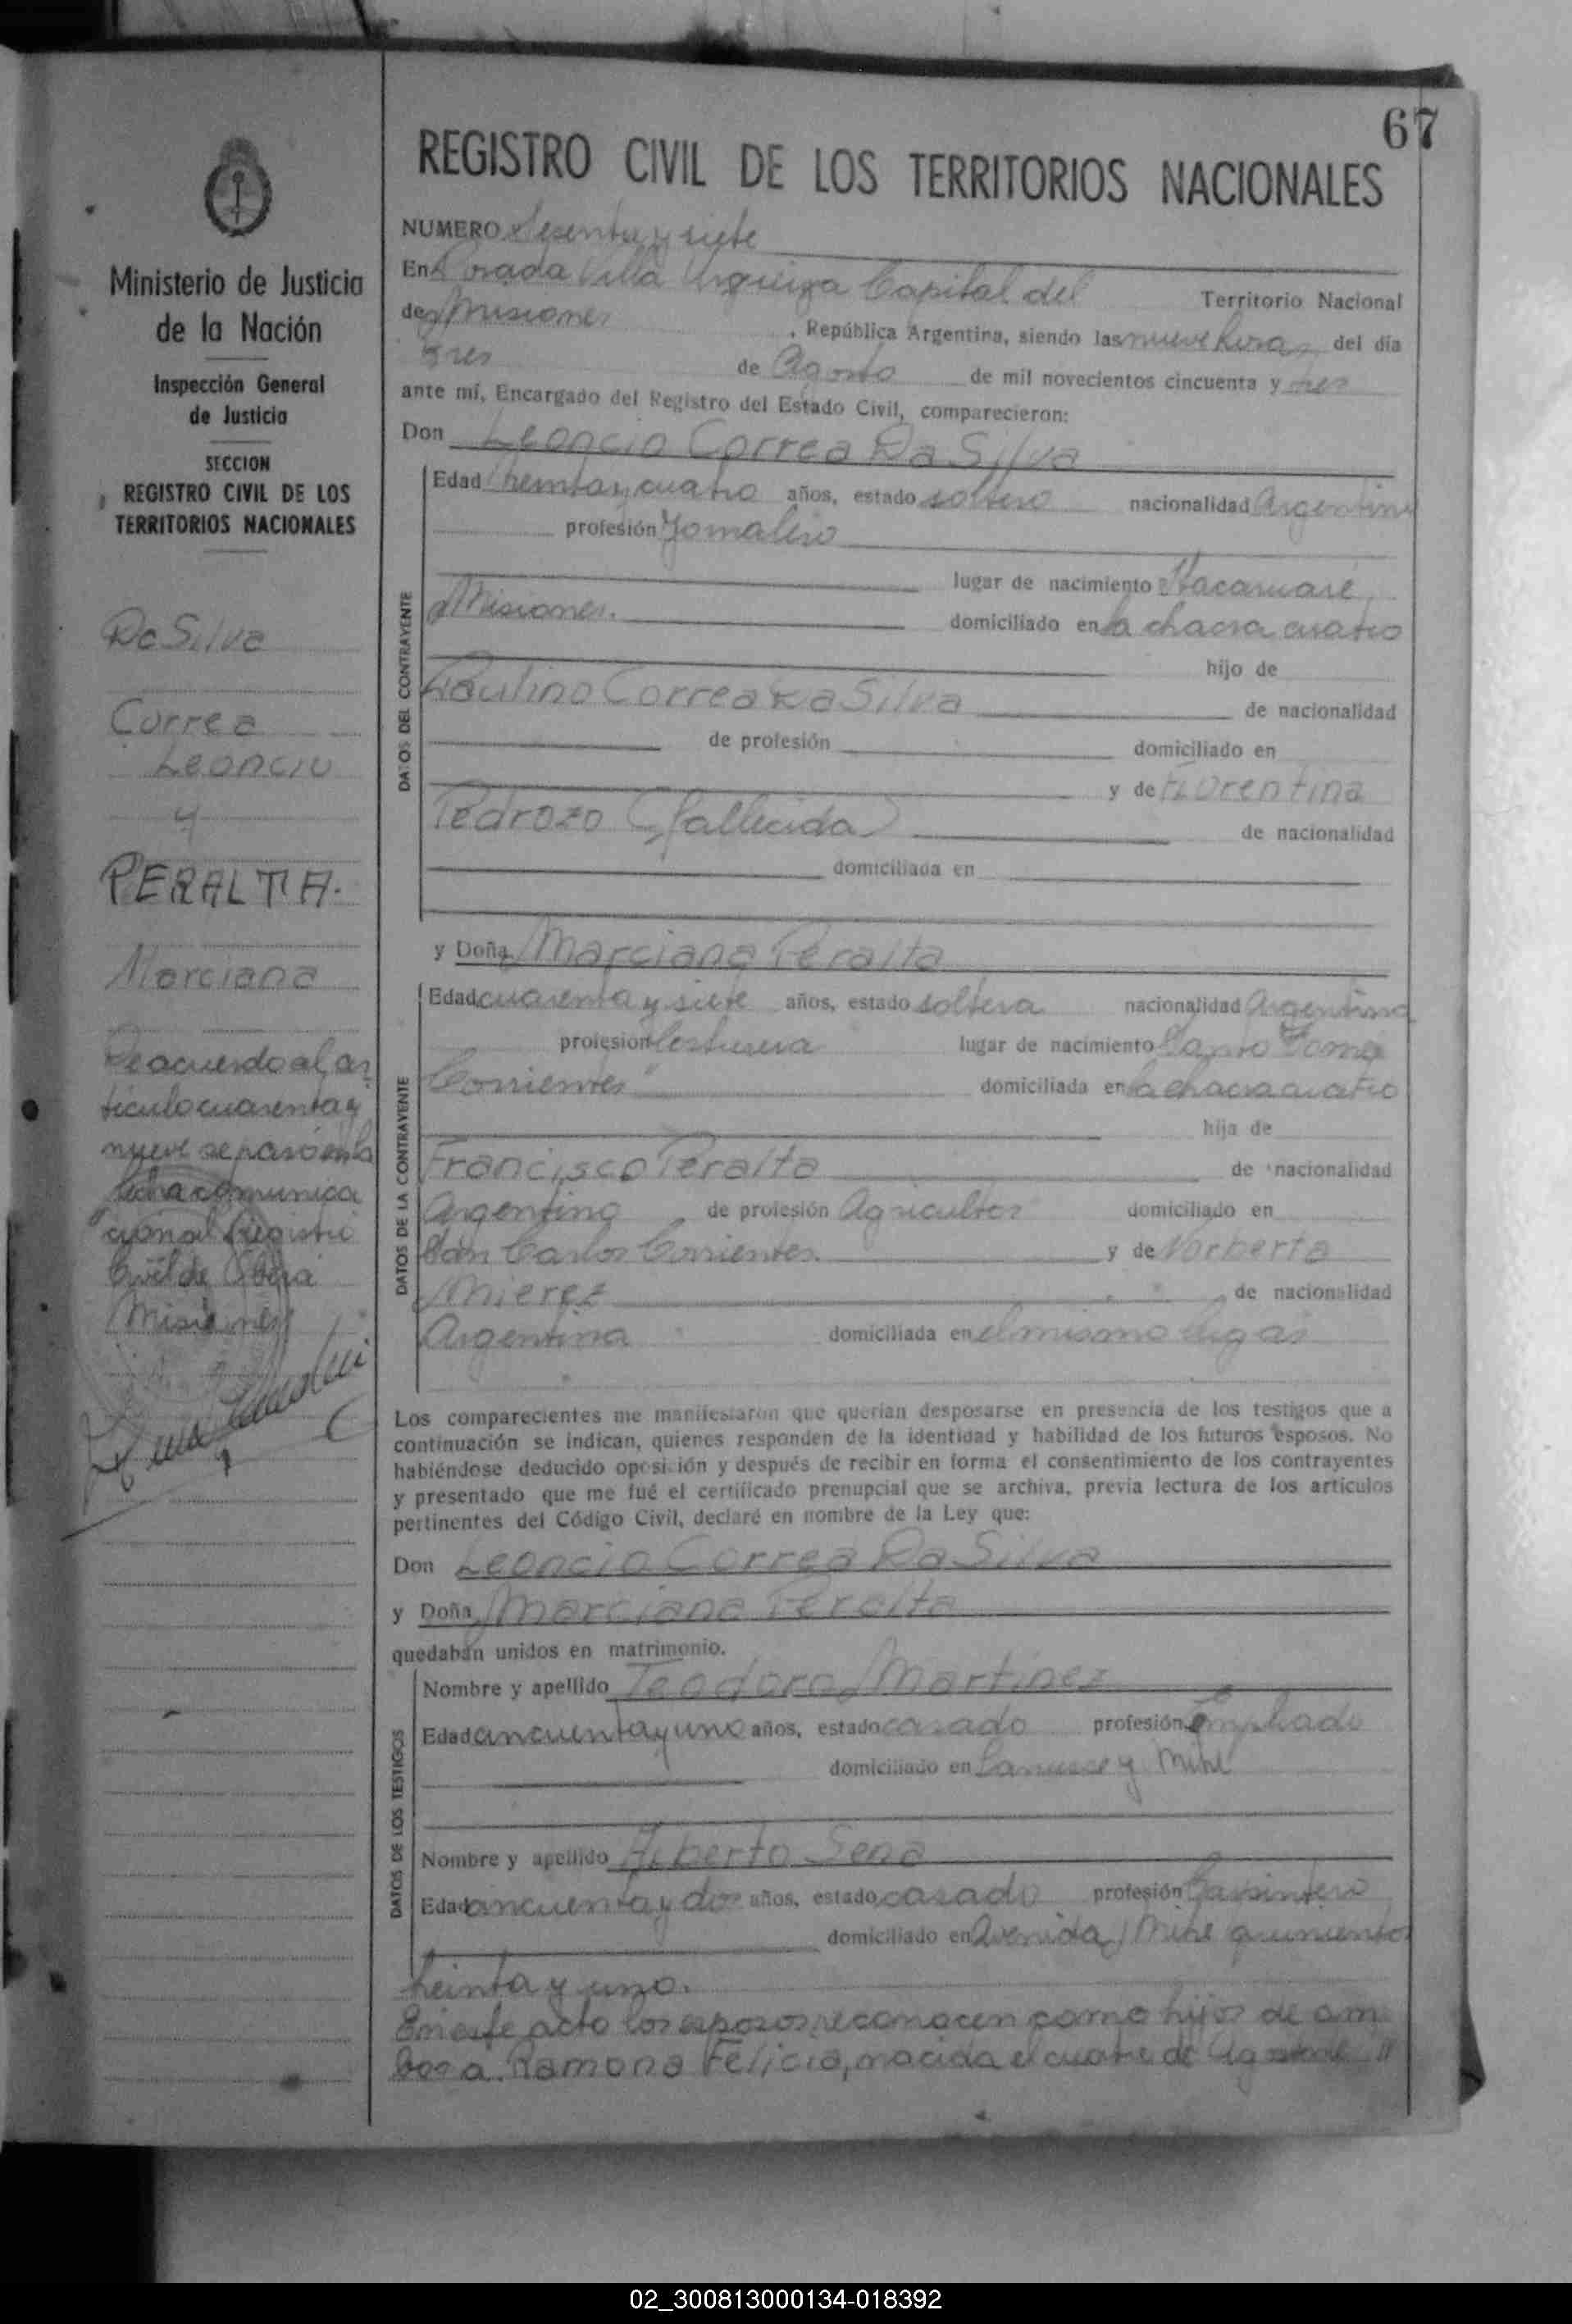 67
REGISTRO CIVIL DE LOS TERRITORIOS NACIONALES
Ministerio de Justicia
de la Nación
Inspección General
de Justicia
SECCION
REGISTRO CIVIL DE LOS
TERRITORIOS NACIONALES
Da Silva
Correa
Leoncio
y
PERALTA.
Marciana
De acuerdo al ar
tículo cuarenta y
nueve se pasó en la
fecha comunica
ción al Registro
Civil de Oberá
Misiones
NUMERO Sesenta y siete
En Posada Villa Urquiza Capital del Territorio Nacional
de Misiones, República Argentina, siendo las nueve horas del día
tres de Agosto de mil novecientos cincuenta y tres
ante mí, Encargado del Registro del Estado Civil, comparecieron:
Don Leoncio Correa Da Silva
DATOS DEL CONTRAYENTE
Edad treinta y cuatro años, estado soltero nacionalidad Argentino
profesión Jornalero
lugar de nacimiento Itacaruaré
Misiones. domiciliado en la chacra cuatro
hijo de
Paulino Correa Da Silva de nacionalidad
de profesión domiciliado en
y de Florentina
Pedrozo (fallecida) de nacionalidad
domiciliada en
y Doña Marciana Peralta
DATOS DE LA CONTRAYENTE
Edad cuarenta y siete años, estado soltera nacionalidad Argentina
profesión Costurera lugar de nacimiento Santo Tomé
Corrientes" domiciliada en la chacra cuatro
hija de
Francisco Peralta de nacionalidad
Argentino de profesión Agricultor domiciliado en
San Carlos Corrientes. y de Norberta
Mierez de nacionalidad
Argentina domiciliada en el mismo lugar
Los comparecientes me manifestaron que querían desposarse en presencia de los testigos que a
continuación se indican, quienes responden de la identidad y habilidad de los futuros esposos. No
habiéndose deducido oposición y después de recibir en forma el consentimiento de los contrayentes
y presentado que me fué el certificado prenupcial que se archiva, previa lectura de los artículos
pertinentes del Código Civil, declaré en nombre de la Ley que:
Don Leoncio Correa Da Silva
y Doña Marciana Peralta
quedaban unidos en matrimonio.
DATOS DE LOS TESTIGOS
Nombre y apellido Teodoro Martinez
Edad cincuenta y uno años, estado casado profesión Empleado
domiciliado en y Mitre
Nombre y apellido Alberto Sena
Edad cincuenta y dos años, estado casado profesión Carpintero
domiciliado en Avenida Mitre quinientos
treinta y uno.
En este acto los esposos reconocen como hijos de am
bos a. Ramona Felicia, nacida el cuatro de Agosto del "
02_300813000134-018392